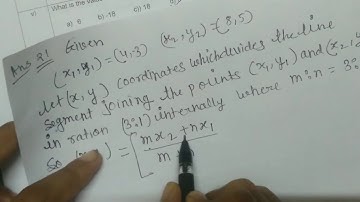 v)
a) 6 b) -18 c) -18 d)
Ans 21 Given
(x₁, y₁) = (4, -3) (x₂, y₂) = (8, 5)
let (x, y) coordinates which divides the line
segment joining the points (x₁, y₁) and (x₂,
in ration (3:1) internally where m:n = 3:
So = [ mx₂ + nx₁
m